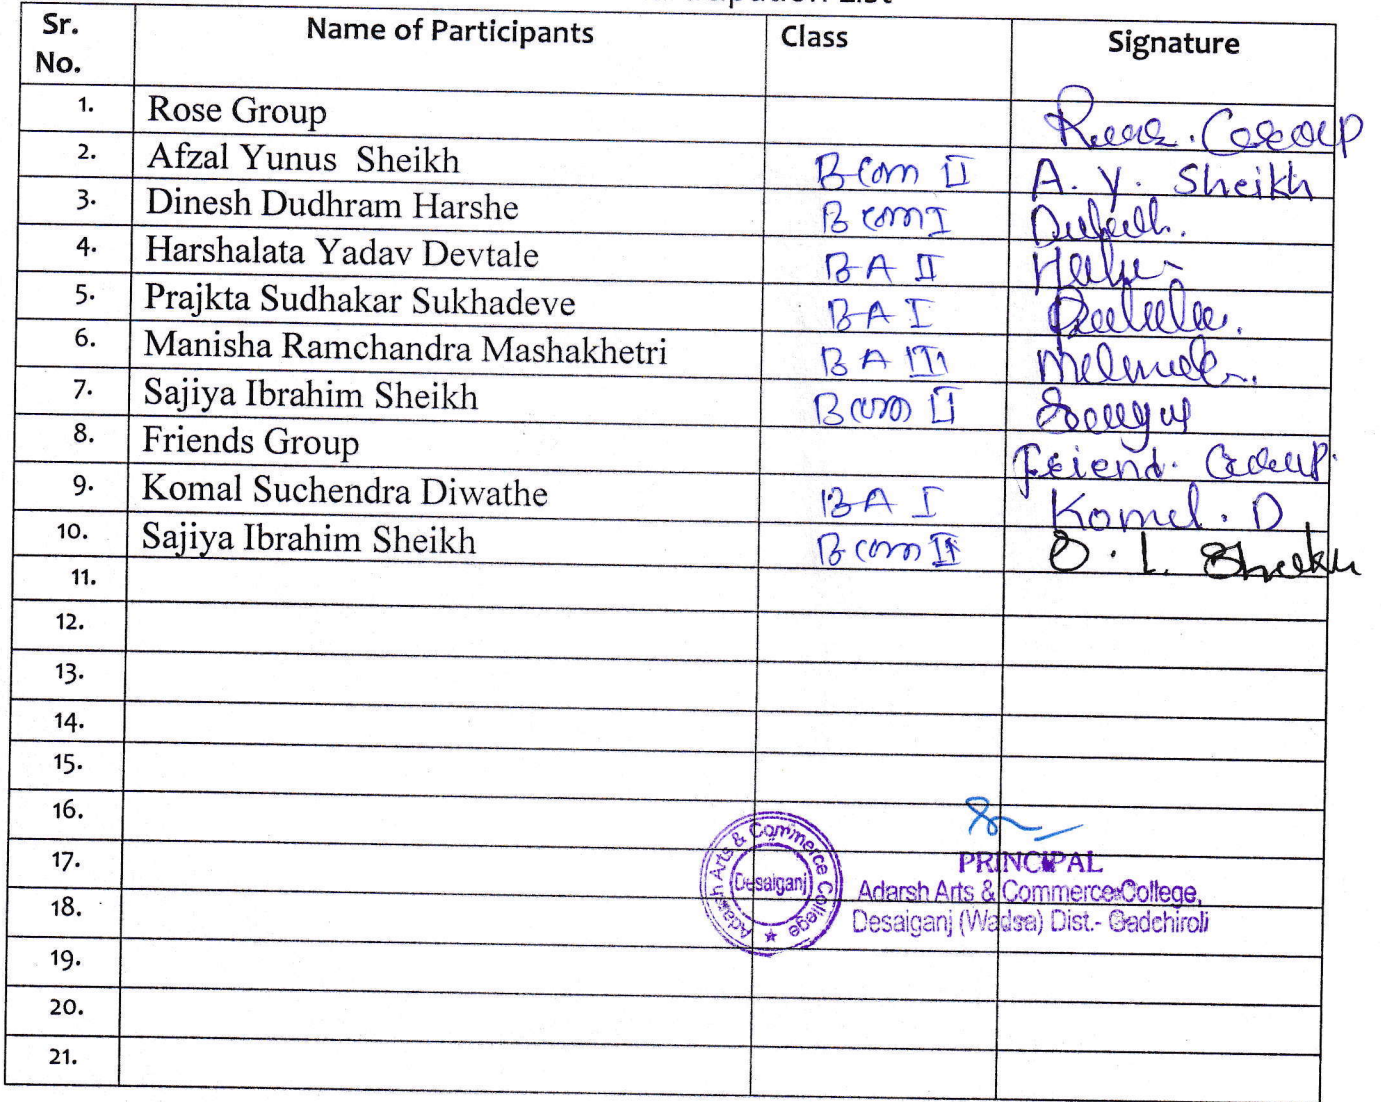 List
Sr. No. Name of Participants Class Signature
1. Rose Group
2. Afzal Yunus Sheikh B com II A. Y. Sheikh
3. Dinesh Dudhram Harshe B com I
4. Harshalata Yadav Devtale B A II
5. Prajkta Sudhakar Sukhadeve B A I
6. Manisha Ramchandra Mashakhetri B A III
7. Sajiya Ibrahim Sheikh B com II
8. Friends Group
9. Komal Suchendra Diwathe B A I Komal. D
10. Sajiya Ibrahim Sheikh B com II S. I. Sheikh
11.
12.
13.
14.
15.
16.
17.
18.
19.
20.
21.
Adarsh Arts & Commerce College
Desaiganj
PRINCIPAL
Adarsh Arts & Commerce College,
Desaiganj (Wadsa) Dist.- Gadchiroli